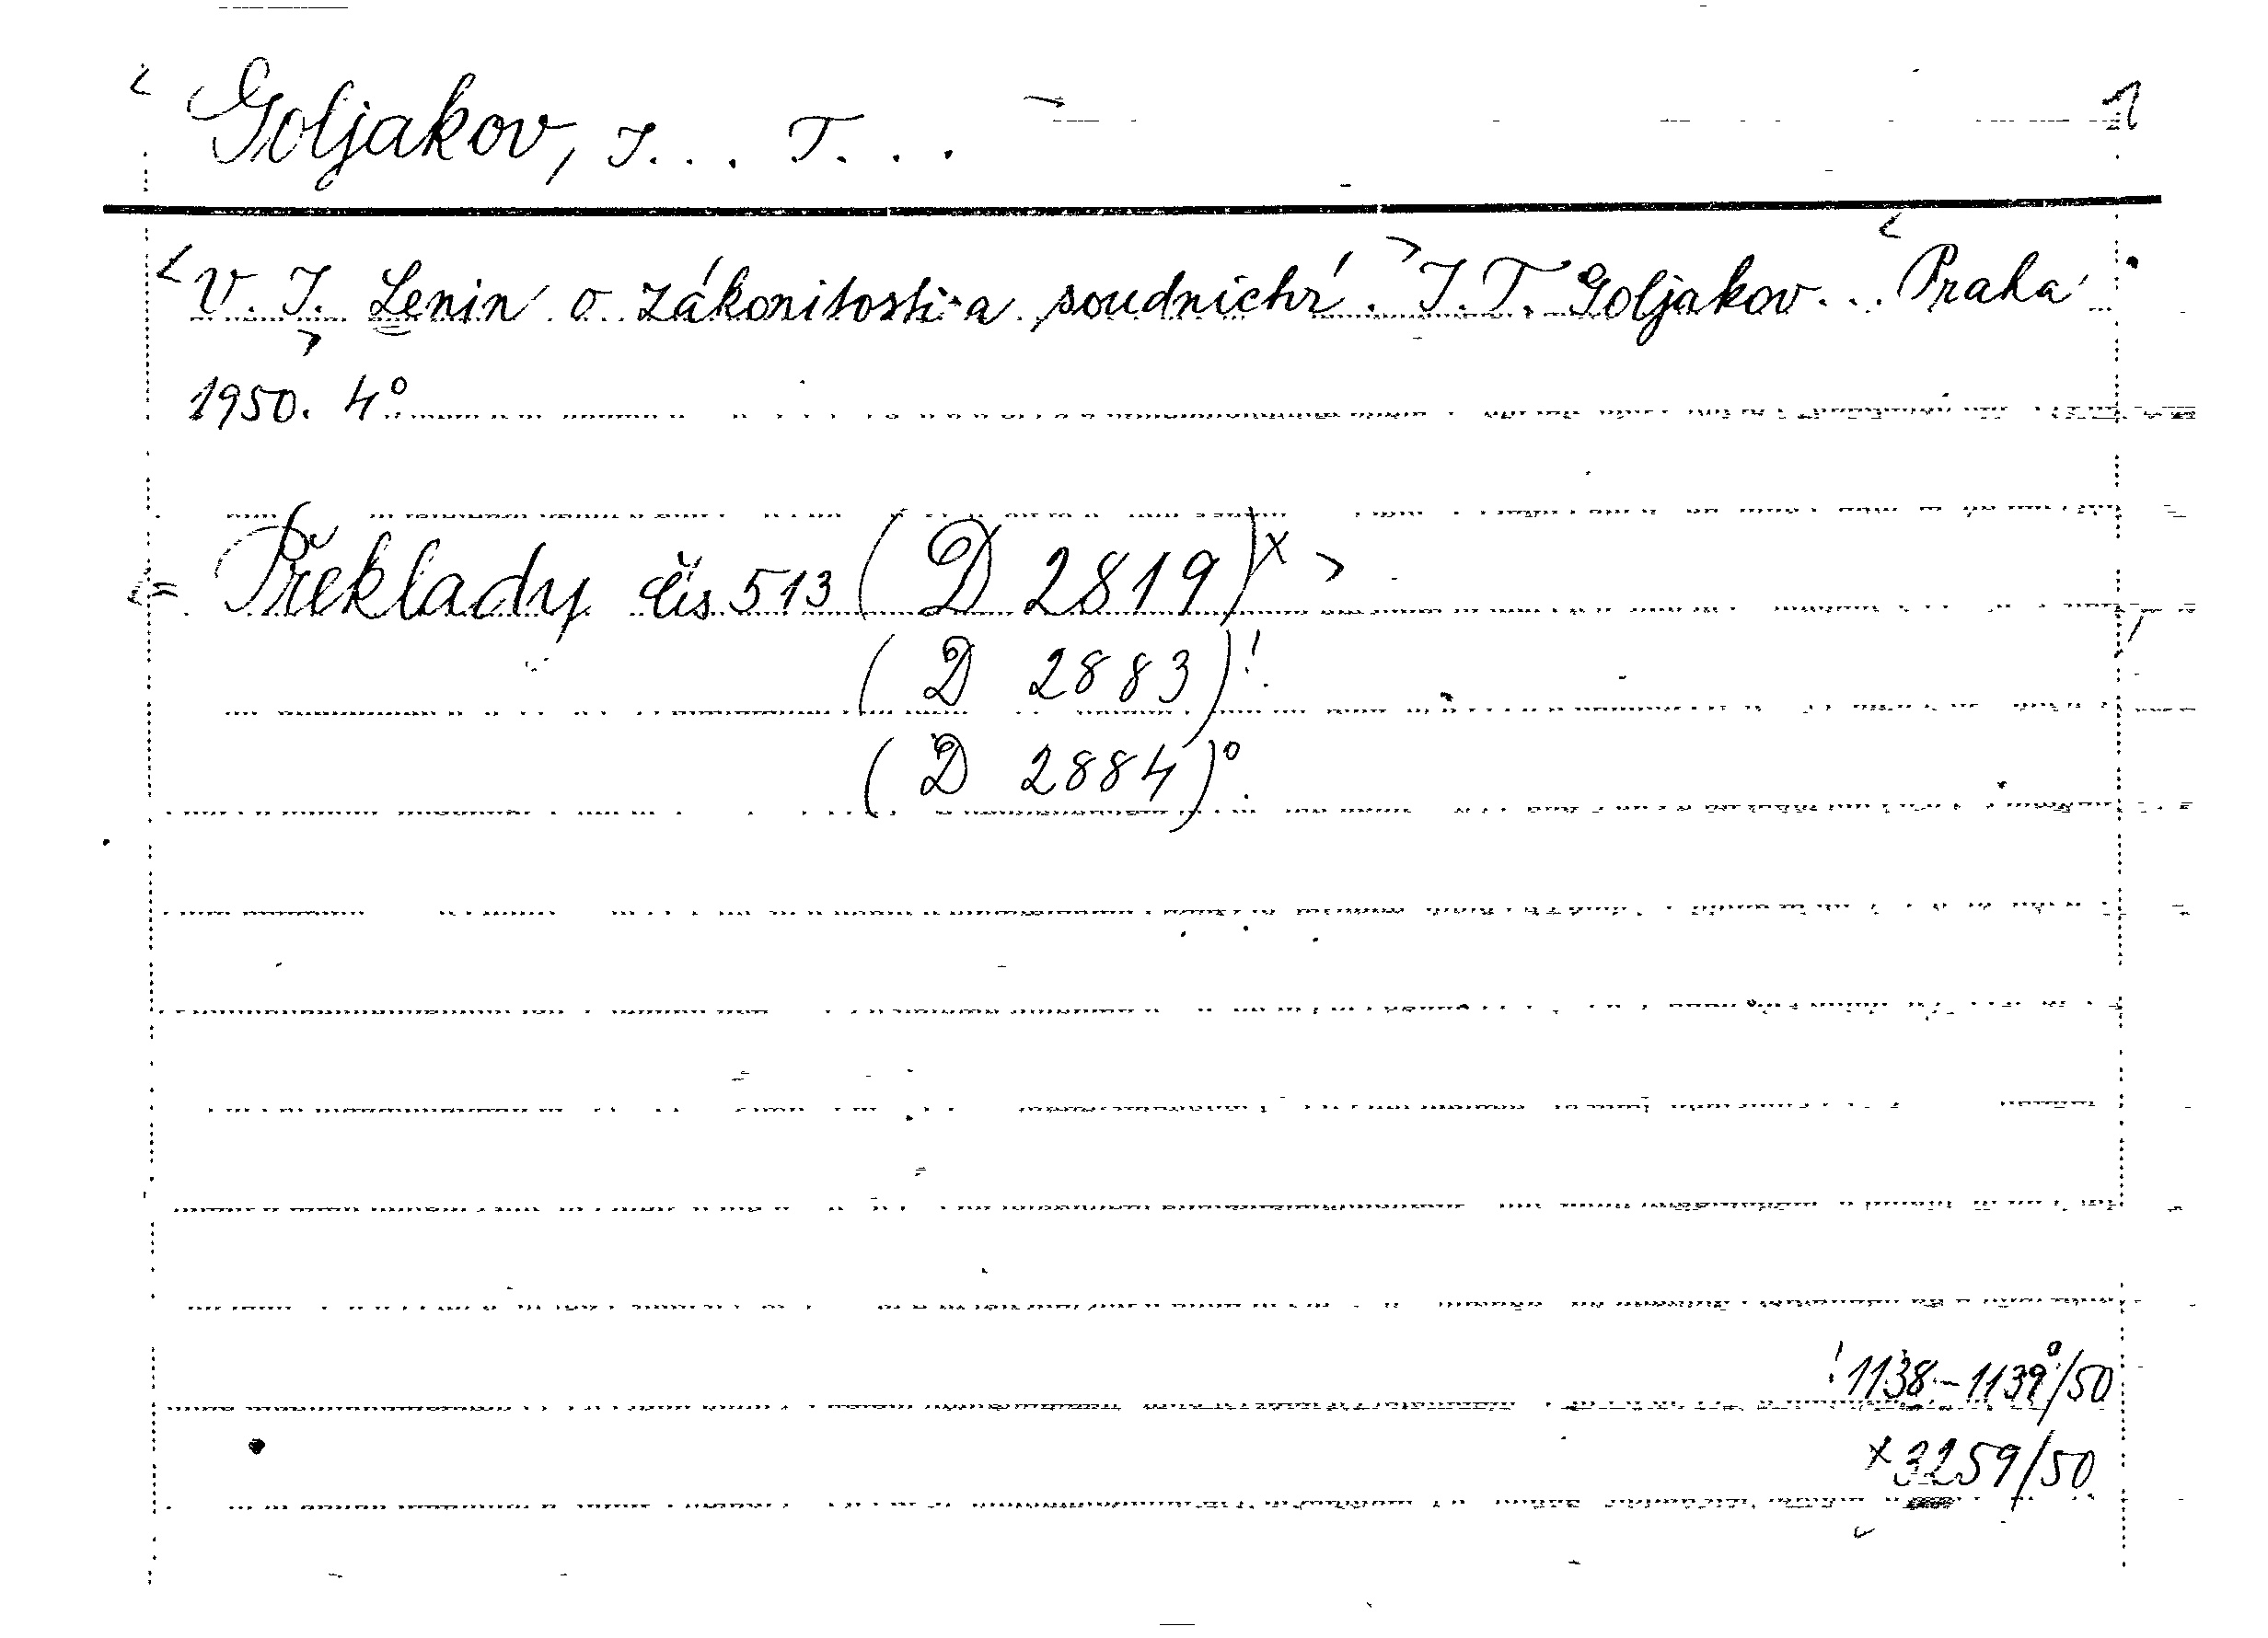 Goljakov, I... T... 1
V. I. Lenin o zákonitosti a soudnictví. I. T. Goljakov... Praha
1950. 4°
= Překlady čís 513 (D 2819)x
(D 2883)!
(D 2884)°
!1138-1139°/50
x3259/50